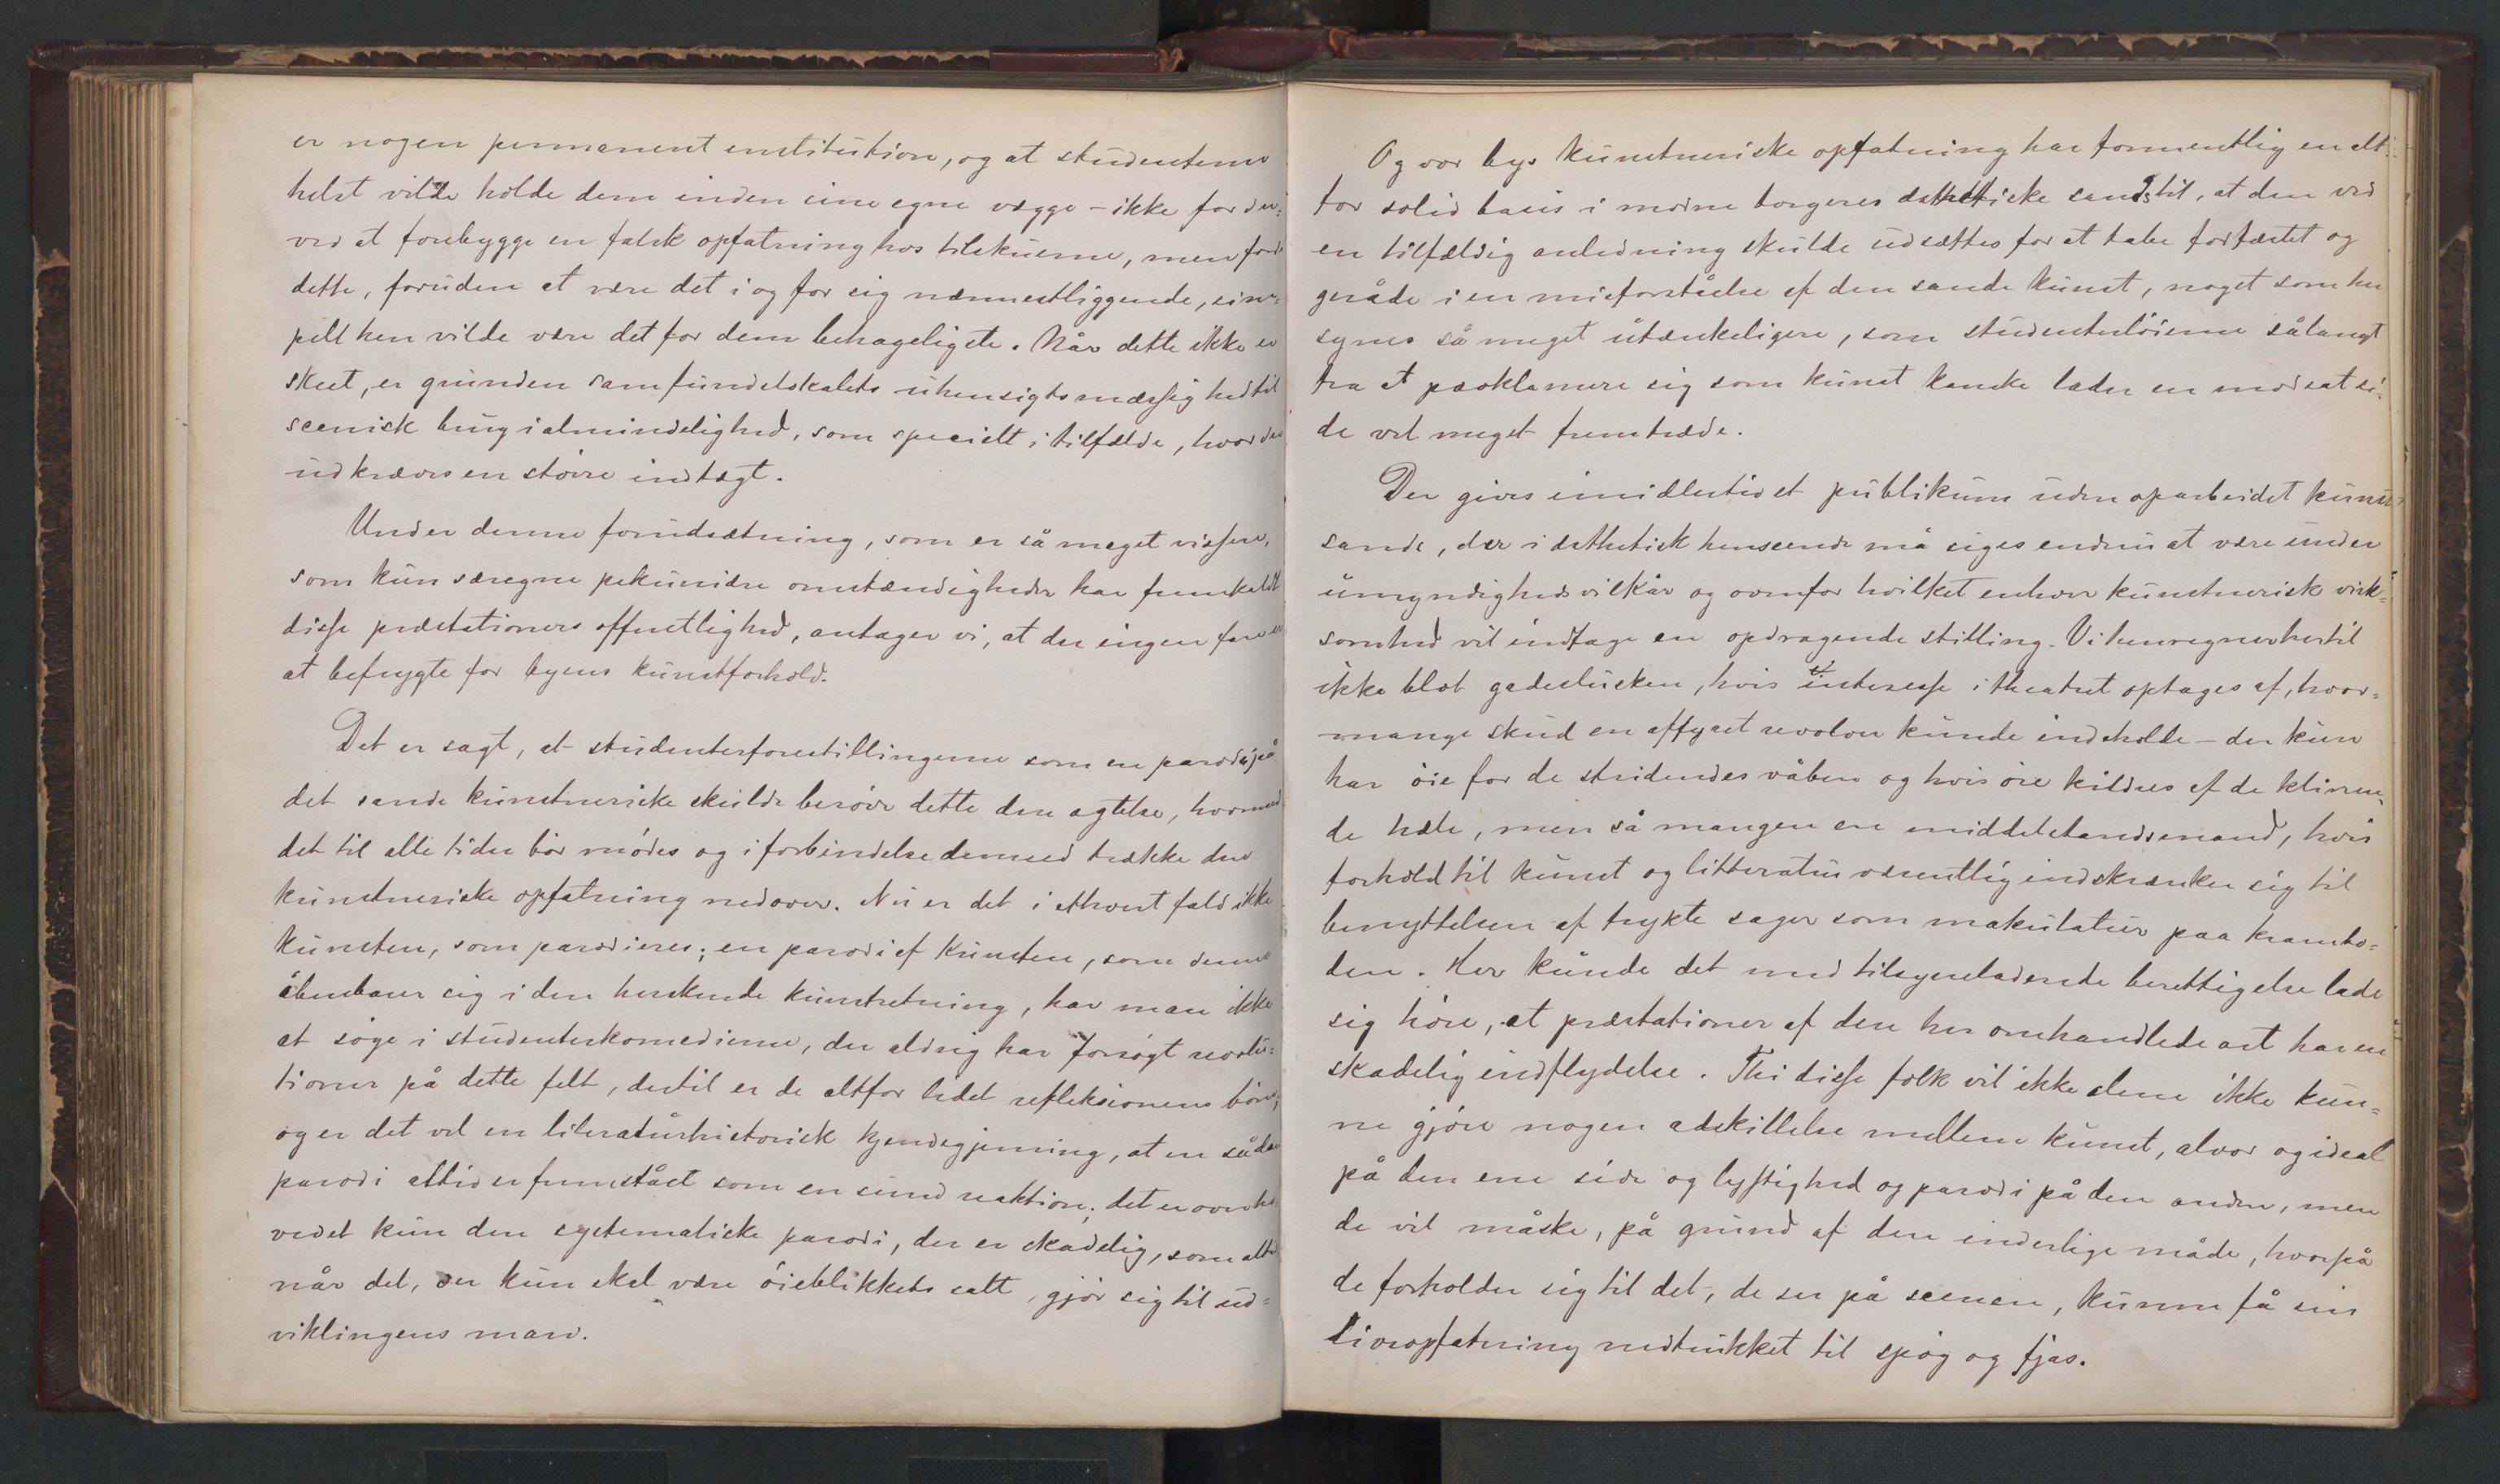 er nogen permanent institution, og at studenterne
helst vilde holde dem inden sine egne vægge – ikke for der-
ved at forebygge en falsk opfatning hos tilskuerne, men fordi
dette, foruden at være det i og for sig nærmestliggende, sim-
pelt hen vilde være det for dem behageligste. Når dette ikke er
skeet, er grunden samfundslokalets uhensigtsmæssighed til
scenisk brug i almindelighed, som specielt i tilfælde, hvor der
udkræves en større indtægt.
Under denne forudsætning, som er så meget vissere,
som kun særegne pekuniære omstændigheder har fremkaldt
disse præstationers offentlighed, antager vi, at der ingen fare er
at befrygte for byens kunstforhold.
Det er sagt, at studenterforestillingerne som en parodi på
det sande kunstneriske skulde berøve dette den agtelse, hvormed
det til alle tider bør mødes og i forbindelse dermed trække den
kunstneriske opfatning nedover. Nu er det i ethvert fald ikke
kunsten, som parodieres; en parodi af kunsten, som denne
åbenbarer sig i den herskende kunstretning, har man ikke
at søge i studenterkomedierne, der aldrig har forsøgt revolu-
tioner på dette felt, dertil er de altfor lidet refleksionens børn;
og er det vel en literaturhistorisk kjendsgjerning, at en sådan
parodi altid er fremstået som en sund reaktion; det er overho-
vedet kun den systematiske parodi, der er skadelig, som altid
når det, der kun skal være øieblikkets salt, gjør sig til ud-
viklingens marv.
Og vor bys kunstneriske opfatning har formentlig en alt-
for solid basis i vore borgeres æsthetiske sands til, at den ved
en tilfældig anledning skulde udsættes for at tabe fodfæstet og
geråde i en misforståelse af den sande kunst, noget som her
synes så meget utænkeligere, som studenterløierne sålangt
fra at proklamere sig som kunst kanske lader en modsat si-
de vel meget fremtræde.
Der gives imidlertid et publikum uden oparbeidet kunst-
sands, der i æsthetisk henseende må siges endnu at være under
umyndigheds vilkår og ovenfor hvilket enhver kunstnerisk virk-
somhed vil indtage en opdragende stilling. Vi henregner hertil
ikke blot gadeslusken, hvis interesse i theatret optages af, hvor-
mange skud en affyret revolver kunde indeholde – der kun
har øie for de stridendes våben og hvis øre kildres af de klirren-
de hæle, men så mangen en middelstandsmand, hvis
forhold til kunst og litteratur væsentlig indskrænker sig til
benyttelsen af trykte sager som makulatur paa krambo-
den. Her kunde det med tilsyneladende berettigelse lade
sig høre, at præstationer af den her omhandlede art har en
skadelig indflydelse. Thi disse folk vil ikke alene ikke kun-
ne gjøre nogen adskillelse mellem kunst, alvor og ideal
på den ene side og lystighed og parodi på den anden, men
de vil måske, på grund af den inderlige måde, hvorpå
de forholder sig til det, de ser på scenen, kunne få sin
livsopfatning nedtrukket til spøg og fjas.